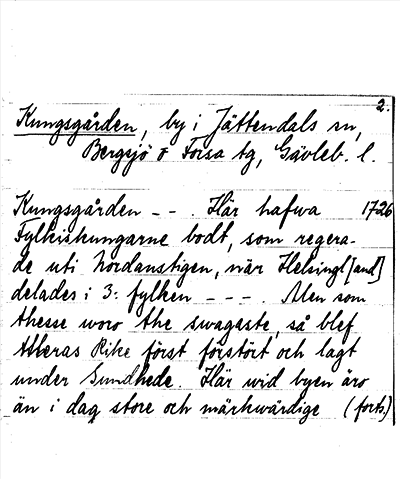 2.
Kungsgården, by i Jättendals sn,
Bergsjö o Forsa tg, Gävleb. l.
Kungsgården - - . Här hafwa 1726
Fylkiskungarne bodt, som regera-
de uti Nordanstigen, när Helsingl[and]
delades i 3: fylken - - - . Men som
thesse woro the swagaste, så blef
theras Rike först förstört och lagt
under Sundhede. Här wid byen äro
än i dag store och märkwärdige (forts)